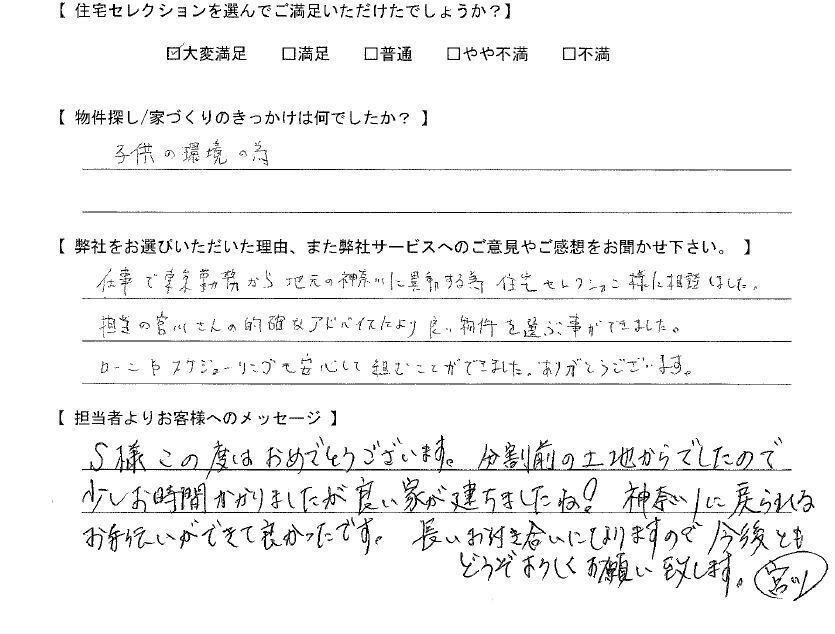 【 住宅セレクションを選んでご満足いただけたでしょうか？】
☑大変満足 □満足 □普通 □やや不満 □不満
【 物件探し/家づくりのきっかけは何でしたか？ 】
子供の環境の為
【 弊社をお選びいただいた理由、また弊社サービスへのご意見やご感想をお聞かせ下さい。 】
仕事で東京勤務から地元の神奈川に異動する為 住宅セレクション様に相談しました。
担当の宮川さんの的確なアドバイスにより良い物件を選ぶ事ができました。
ローンやスケジューリングも安心して組むことができました。ありがとうございます。
【 担当者よりお客様へのメッセージ 】
S様 この度はおめでとうございます。 分割前の土地からでしたので
少しお時間かかりましたが良い家が建ちましたね！ 神奈川に戻られる
お手伝いができて良かったです。 長いお付き合いになりますので今後とも
どうぞよろしくお願い致します。 宮川